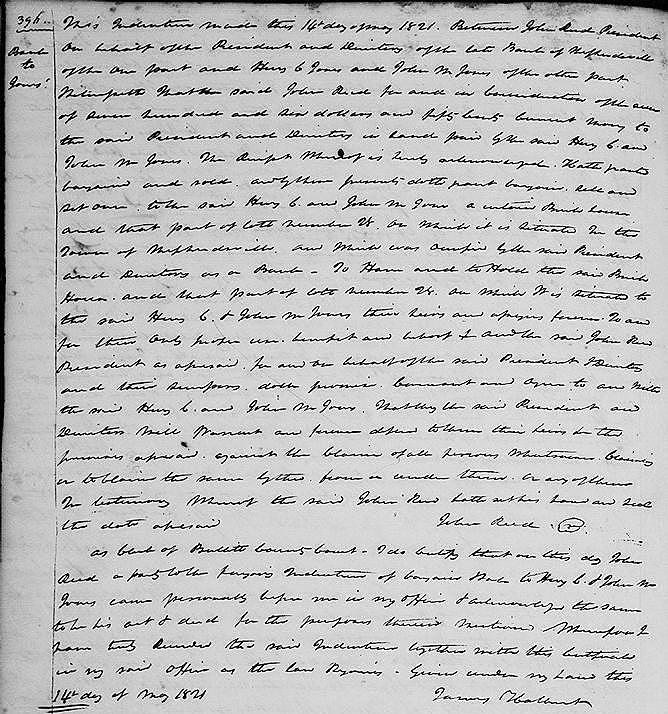 396.
Bank
to
Jones
This Indenture made this 14th day of may 1821. Between John Reed President
on behalf of the President and Directors of the late Bank of Shepherdsville
of the one part and Henry C Jones and John M Jones of the other part.
Witnesseth That the said John Reed for and in Consideration of the sum
of Seven hundred and six dollars and fifty Cents Current money to
the said President and Directors in hand paid by the said Henry C. and
John M Jones. The Receipt Whereof is hereby acknowledged. Hath granted
bargained and sold. and by these presents doth grant bargain. sell and
Set over. to the said Henry C and John M Jones a certain Brick house
and that part of lott number 28. on Which it is Situated In the
Town of Shepherdsville. and Which was occupied by the said President
and Directors as a Bank - To Have and to Hold the said Brick
House. and that part of lott number 28. on Which It is situated to
the said Henry C. & John M Jones their heirs and assigns forever. To and
for their only proper use. benefit and behoof & And the said John Reed
President as aforesaid. for and on behalf of the said President & Directors
and their Successors. doth promise. Covenant and agree to and With
the said Henry C. and John M Jones. That they the said President and
Directors Will Warrant and forever defend to them their heirs &c the
premises aforesaid. against the Claim of all persons Whatsoever. Claiming
or to Claim the same by the. from or under them. or any of them
In testimony Whereof the said John Reed hath set his hand and Seal
the date aforesaid
John Reed.
as Clerk of Bullitt County Court - I do certify that on this day John
Reed a party to the foregoing Indenture of bargain & sale to Henry C. & John M
Jones came personally before me in my office & acknowledged the same
to be his act & deed for the purposes therein mentioned Wherefore I
have truly Recorded the said Indenture together with this Certificate
in my said office as the law Requires - Given under my hand this
14th day of May 1821
James Halbert